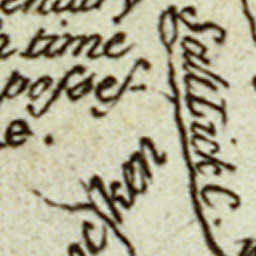 n time
posses-
e.
Salt Lick C.
ken